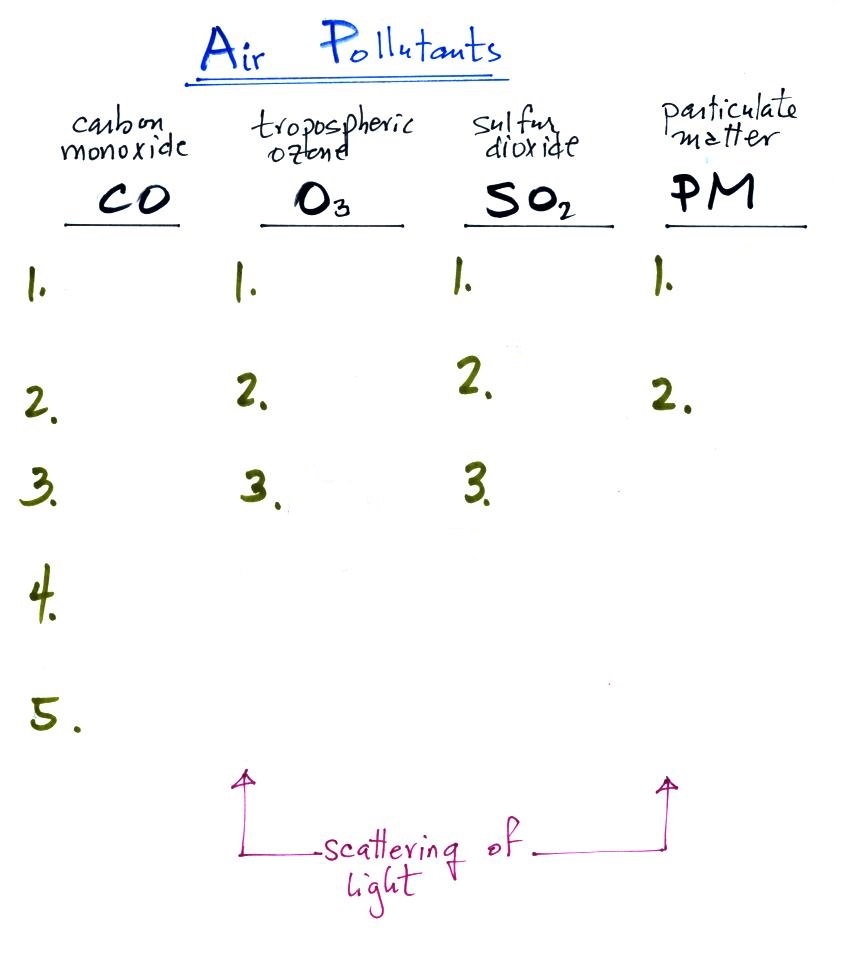 Air Pollutants
carbon monoxide
tropospheric ozone
sulfur dioxide
particulate matter
CO O₃ SO₂ PM
1. 1. 1. 1.
2. 2. 2. 2.
3. 3. 3.
4.
5.
scattering of
light